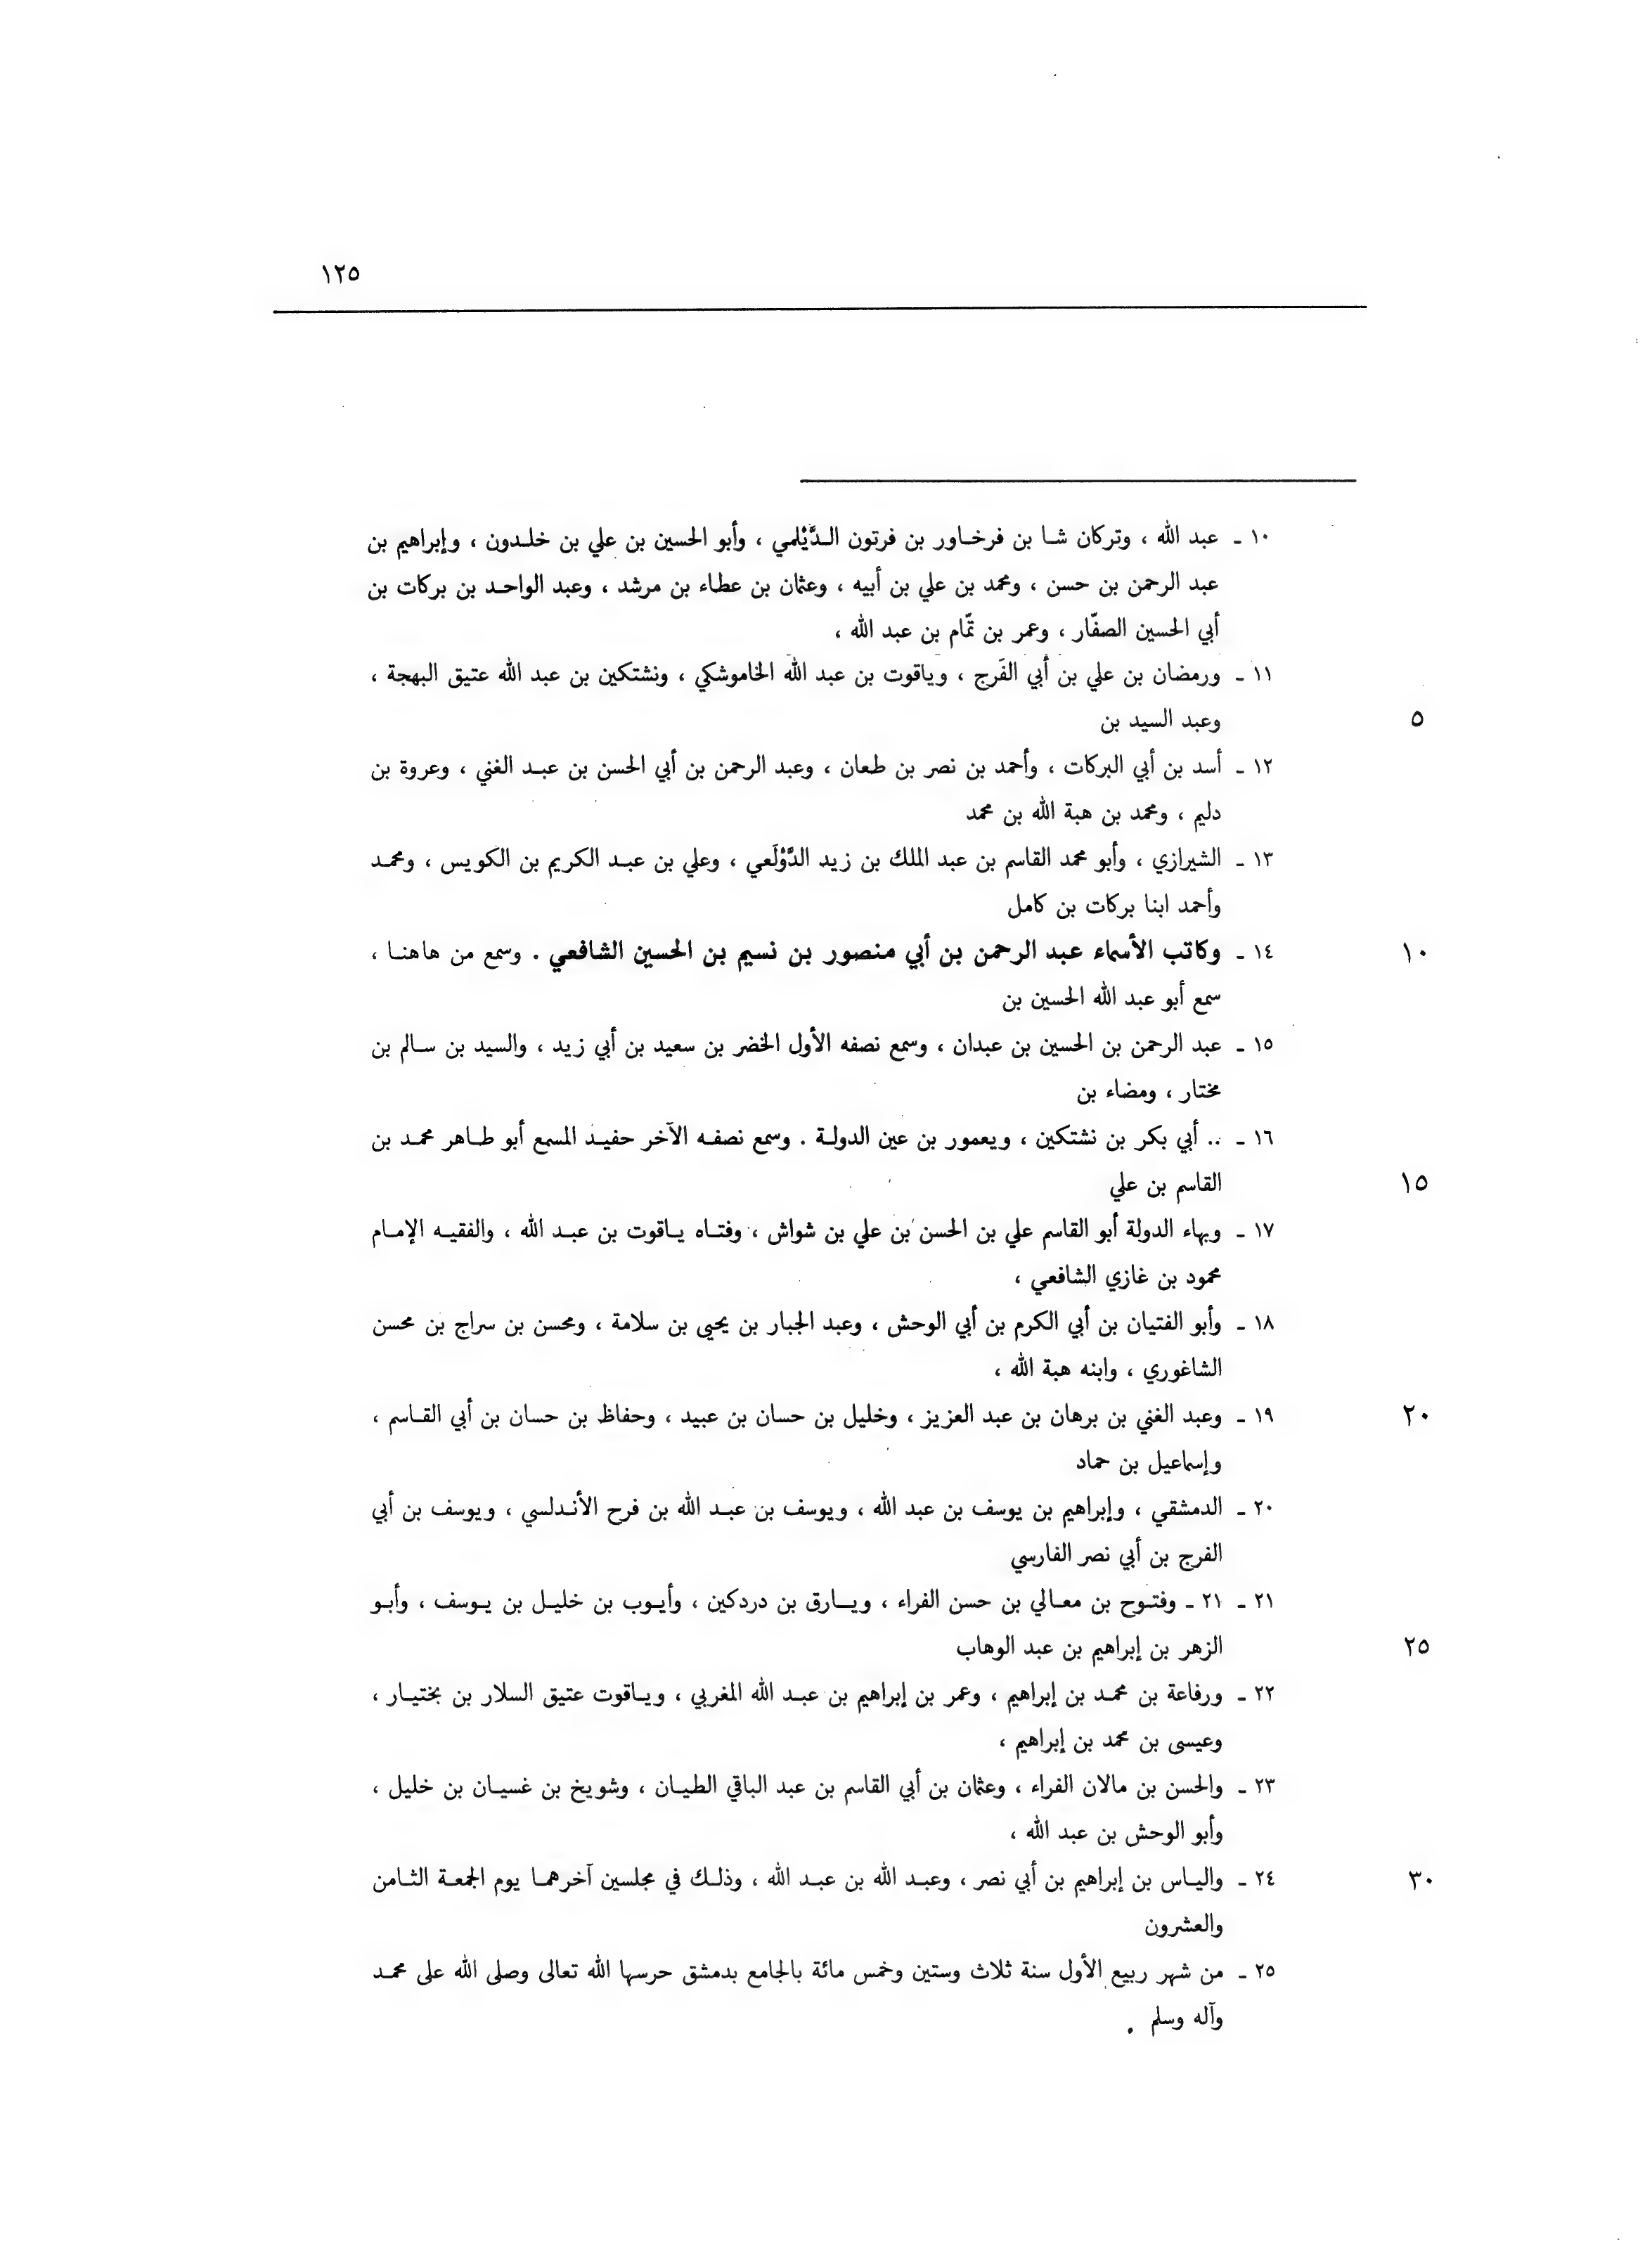 ١٢٥
١٠ ـ عبد الله ، وتركان شا بن فرخاور بن فرتون الدَّيْلمي ، وأبو الحسين بن علي بن خلدون ، وإبراهيم بن
عبد الرحمن بن حسن ، ومحمد بن علي بن أبيه ، وعثمان بن عطاء بن مرشد ، وعبد الواحد بن بركات بن
أبي الحسين الصفّار ، وعمر بن تمّام بن عبد الله ،
١١ ـ ورمضان بن علي بن أبي الفَرج ، وياقوت بن عبد الله الخاموشكي ، ونشتكين بن عبد الله عتيق البهجة ،
وعبد السيد بن
٥
١٢ ـ أسد بن أبي البركات ، وأحمد بن نصر بن طعان ، وعبد الرحمن بن أبي الحسن بن عبد الغني ، وعروة بن
دليم ، ومحمد بن هبة الله بن محمد
١٣ ـ الشيرازي ، وأبو محمد القاسم بن عبد الملك بن زيد الدَّوْلَعي ، وعلي بن عبد الكريم بن الكويس ، ومحمد
وأحمد ابنا بركات بن كامل
١٤ ـ وكاتب الأسماء عبد الرحمن بن أبي منصور بن نسيم بن الحسين الشافعي . وسمع من هاهنا ،
١٠
سمع أبو عبد الله الحسين بن
١٥ ـ عبد الرحمن بن الحسين بن عبدان ، وسمع نصفه الأول الخضر بن سعيد بن أبي زيد ، والسيد بن سالم بن
مختار ، ومضاء بن
١٦ ـ .. أبي بكر بن نشتكين ، ويعمور بن عين الدولة . وسمع نصفه الآخر حفيد المسمع أبو طاهر محمد بن
القاسم بن علي
١٥
١٧ ـ وبهاء الدولة أبو القاسم علي بن الحسن بن علي بن شواش ، وفتاه ياقوت بن عبد الله ، والفقيه الإمام
محمود بن غازي الشافعي ،
١٨ ـ وأبو الفتيان بن أبي الكرم بن أبي الوحش ، وعبد الجبار بن يحيى بن سلامة ، ومحسن بن سراج بن محسن
الشاغوري ، وابنه هبة الله ،
١٩ ـ وعبد الغني بن برهان بن عبد العزيز ، وخليل بن حسان بن عبيد ، وحفاظ بن حسان بن أبي القاسم ،
٢٠
وإسماعيل بن حماد
٢٠ ـ الدمشقي ، وإبراهيم بن يوسف بن عبد الله ، ويوسف بن عبد الله بن فرح الأندلسي ، ويوسف بن أبي
الفرج بن أبي نصر الفارسي
٢١ ـ ٢١ ـ وفتوح بن معالي بن حسن الفراء ، ويارق بن دردكين ، وأيوب بن خليل بن يوسف ، وأبو
الزهر بن إبراهيم بن عبد الوهاب
٢٥
٢٢ ـ ورفاعة بن محمد بن إبراهيم ، وعمر بن إبراهيم بن عبد الله المغربي ، وياقوت عتيق السلار بن بختيار ،
وعيسى بن محمد بن إبراهيم ،
٢٣ ـ والحسن بن مالان الفراء ، وعثمان بن أبي القاسم بن عبد الباقي الطيان ، وشويخ بن غسيان بن خليل ،
وأبو الوحش بن عبد الله ،
٢٤ ـ والياس بن إبراهيم بن أبي نصر ، وعبد الله بن عبد الله ، وذلك في مجلسين آخرهما يوم الجمعة الثامن
٣٠
والعشرون
٢٥ ـ من شهر ربيع الأول سنة ثلاث وستين وخمس مائة بالجامع بدمشق حرسها الله تعالى وصلى الله على محمد
وآله وسلم .